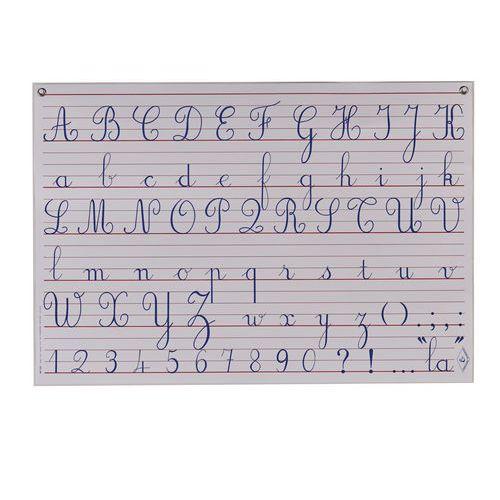 A B C D E F G H I J K
a b c d e f g h i j k
L M N O P Q R S T U V
l m n o p q r s t u v
W X Y Z w x y z ( ) . ; , :
1 2 3 4 5 6 7 8 9 0 ? ! ... "la"